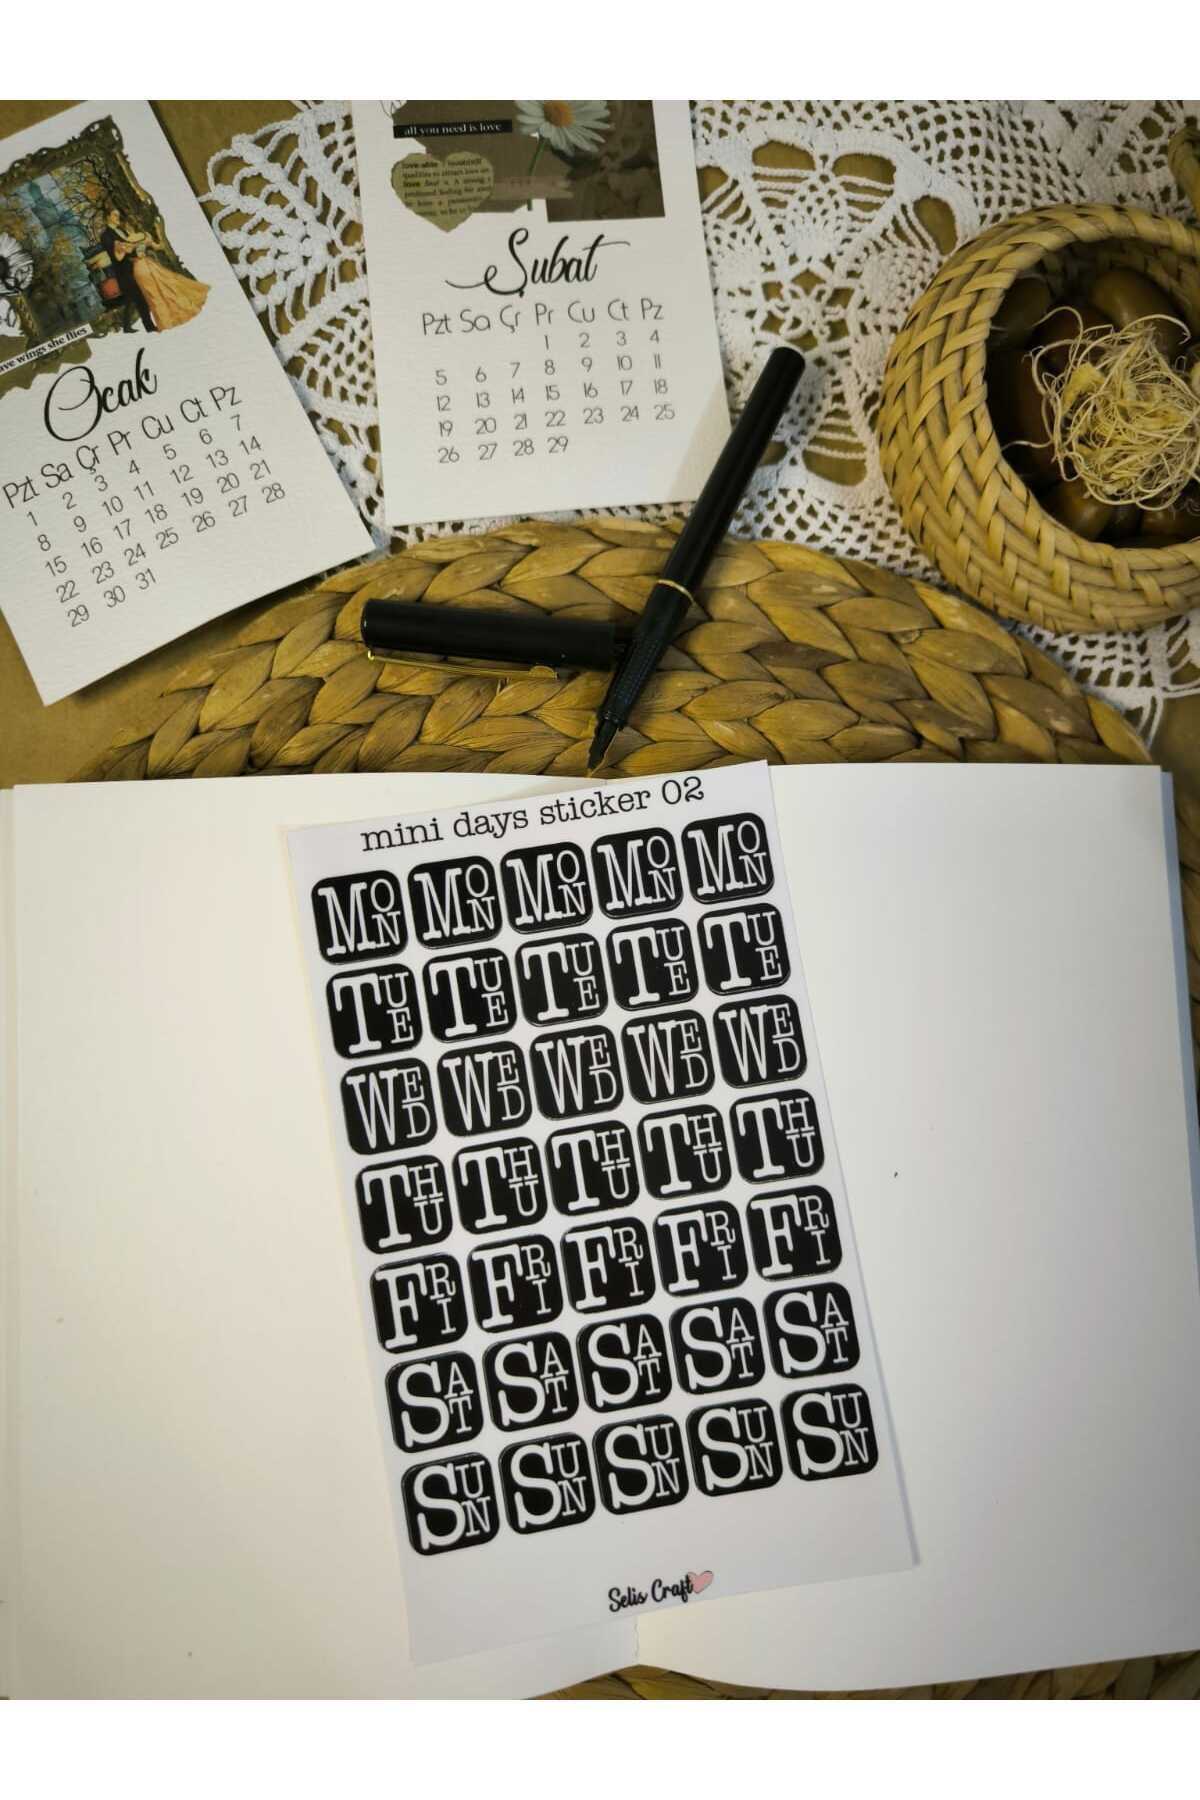 all you need is love
Şubat
Pzt Sa Çr Pr Cu Ct Pz
1 2 3 4
5 6 7 8 9 10 11
12 13 14 15 16 17 18
19 20 21 22 23 24 25
26 27 28 29
she flies
Ocak
Pzt Sa Çr Pr Cu Ct Pz
1 2 3 4 5 6 7
8 9 10 11 12 13 14
15 16 17 18 19 20 21
22 23 24 25 26 27 28
29 30 31
mini days sticker 02
MON MON MON MON MON
TUE TUE TUE TUE TUE
WED WED WED WED WED
THU THU THU THU THU
FRI FRI FRI FRI FRI
SAT SAT SAT SAT SAT
SUN SUN SUN SUN SUN
Selis Craft